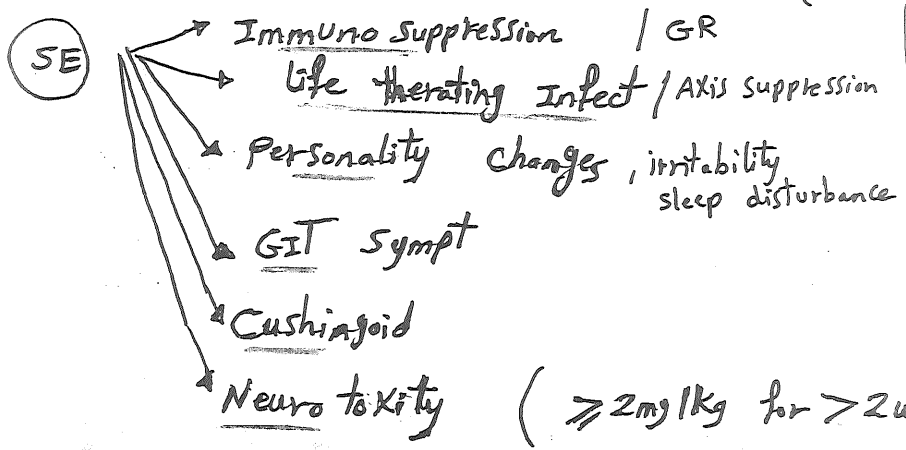 SE
Immuno suppression / GR
Life therating Infect / Axis suppression
Personality changes, irritability
sleep disturbance
GIT sympt
Cushingoid
Neuro toxity ( ≥2mg/kg for >2